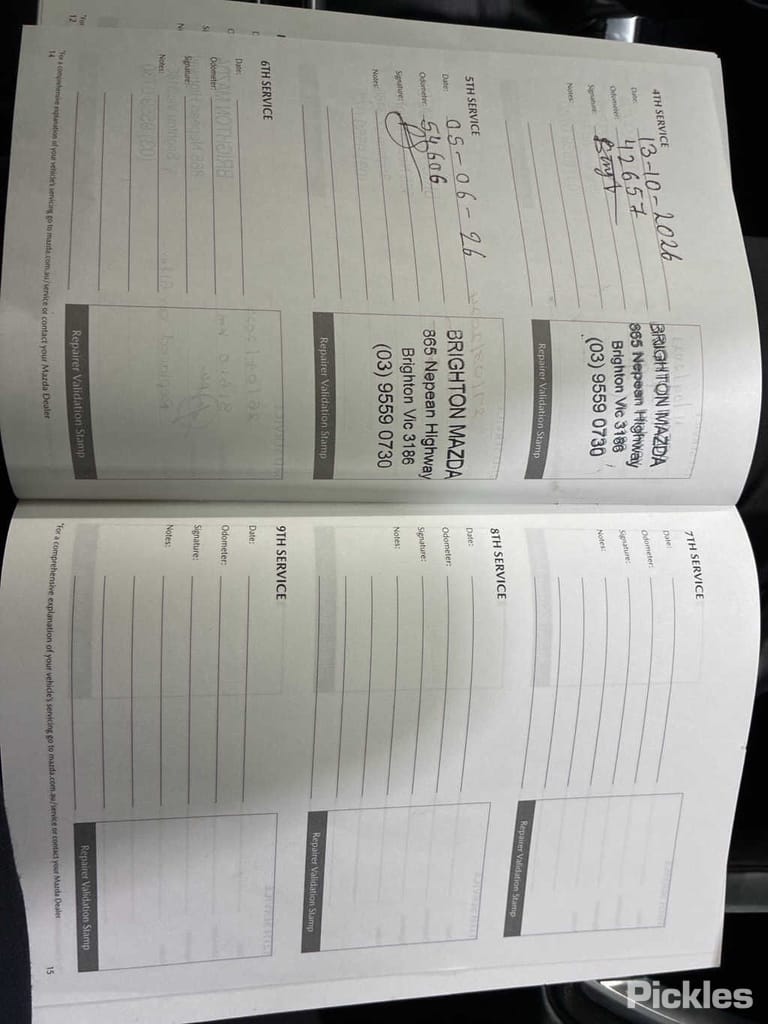 4TH SERVICE
Date: 13-10-2026
Odometer: 42657
Signature:
Notes:
BRIGHTON MAZDA
865 Nepean Highway
Brighton Vic 3186
(03) 9559 0730
Repairer Validation Stamp
5TH SERVICE
Date: 05-06-26
Odometer: 54606
Signature:
Notes:
BRIGHTON MAZDA
865 Nepean Highway
Brighton Vic 3186
(03) 9559 0730
Repairer Validation Stamp
6TH SERVICE
Date:
Odometer:
Signature:
Notes:
Repairer Validation Stamp
*For a comprehensive explanation of your vehicle's servicing go to mazda.com.au/service or contact your Mazda Dealer
14
12
7TH SERVICE
Date:
Odometer:
Signature:
Notes:
Repairer Validation Stamp
8TH SERVICE
Date:
Odometer:
Signature:
Notes:
Repairer Validation Stamp
9TH SERVICE
Date:
Odometer:
Signature:
Notes:
Repairer Validation Stamp
*For a comprehensive explanation of your vehicle's servicing go to mazda.com.au/service or contact your Mazda Dealer
15
Pickles